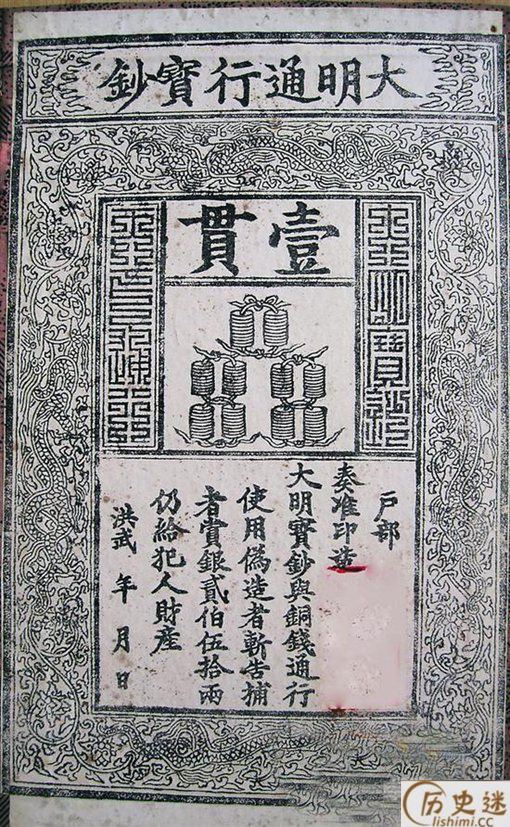 大明通行寶鈔
壹貫
戶部
奏准印造
大明寶鈔與銅錢通行
使用偽造者斬告捕
者賞銀貳伯伍拾兩
仍給犯人財產
洪武 年 月 日
历史迷
lishimi.cc